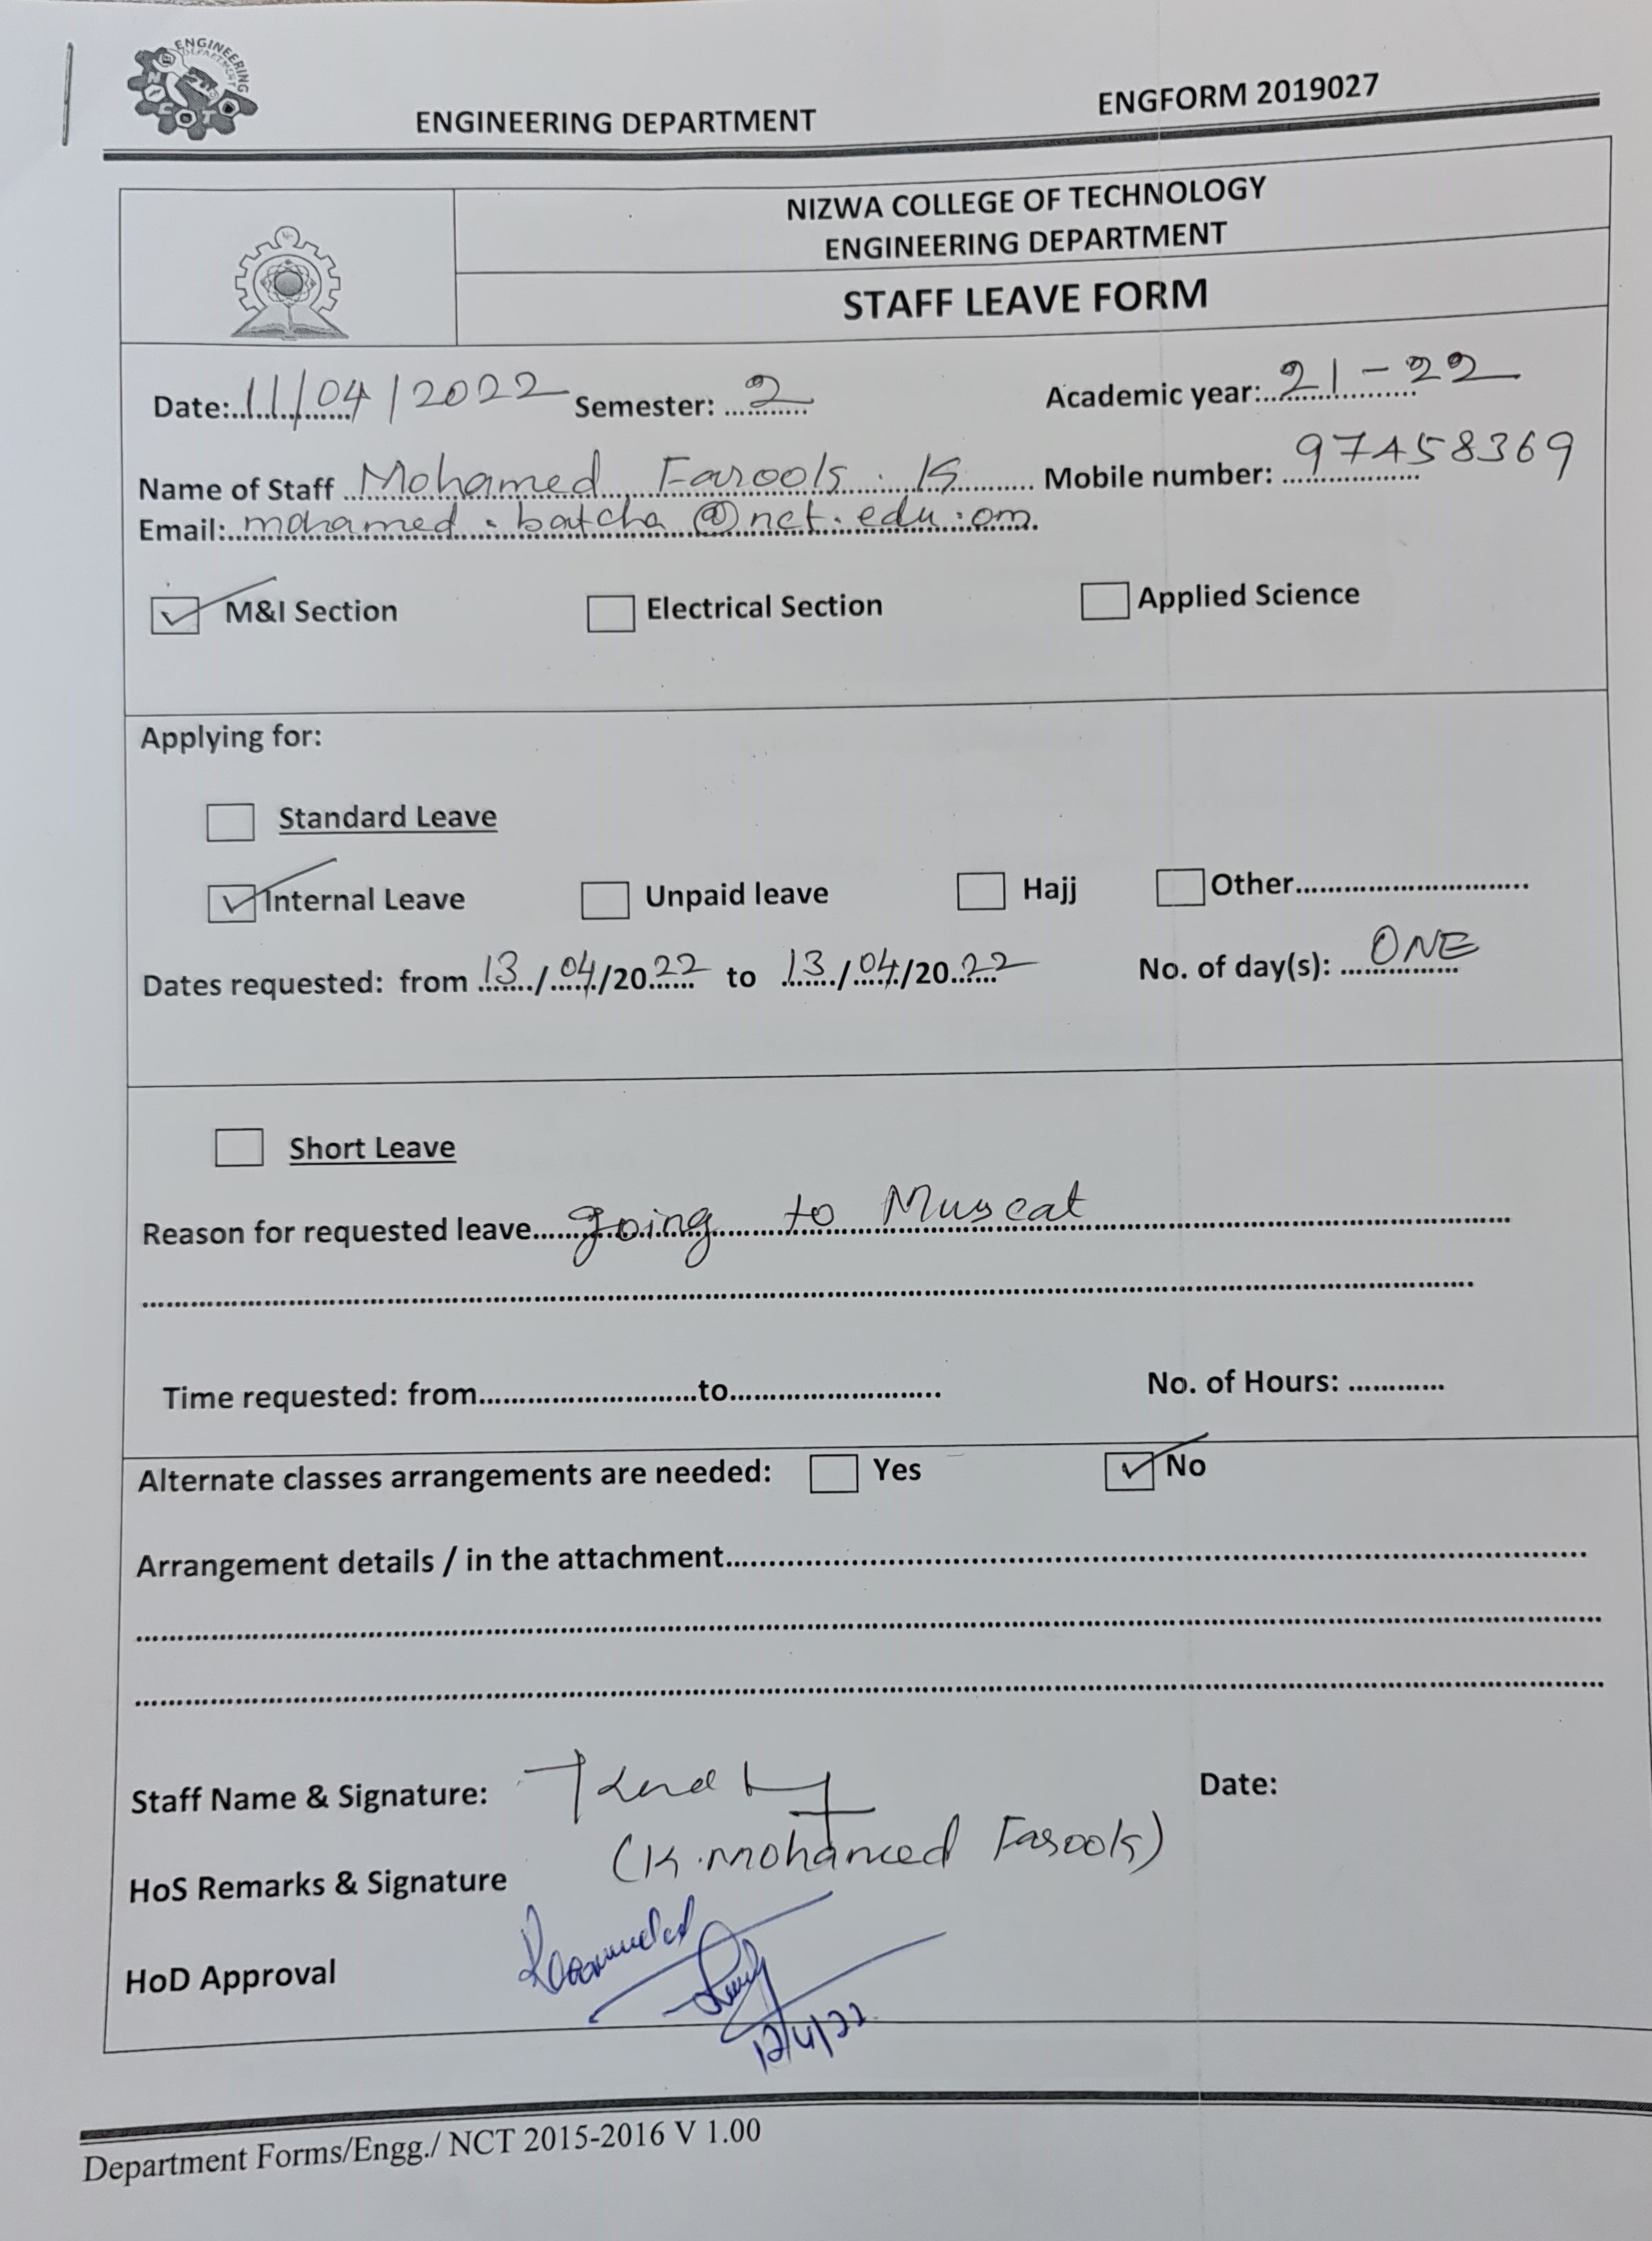 ENGINEERING DEPARTMENT
ENGINEERING DEPARTMENT ENGFORM 2019027
NIZWA COLLEGE OF TECHNOLOGY
ENGINEERING DEPARTMENT
STAFF LEAVE FORM
Date: 11/04/2022 Semester: 2 Academic year: 21-22
Name of Staff Mohamed Farook . K Mobile number: 97458369
Email: mohamed.batcha@nct.edu.om
M&I Section Electrical Section Applied Science
Applying for:
Standard Leave
Internal Leave Unpaid leave Hajj Other
Dates requested: from 13/04/2022 to 13/04/2022 No. of day(s): ONE
Short Leave
Reason for requested leave going to Muscat
Time requested: from to No. of Hours:
Alternate classes arrangements are needed: Yes No
Arrangement details / in the attachment
Staff Name & Signature: Date:
(K. Mohamed Farook)
HoS Remarks & Signature
Recommended
HoD Approval
12/4/22
Department Forms/Engg./ NCT 2015-2016 V 1.00